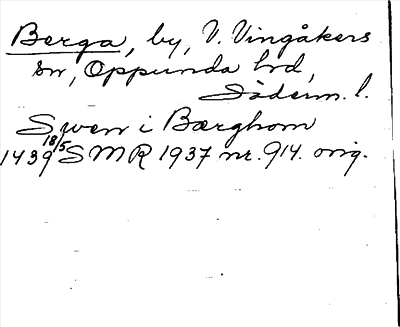 Berga, by, V. Vingåkers
sn, Oppunda hrd,
Söderm. l.
Swen i Bærghom
1439 18/5 SMR 1937 nr. 914. orig.